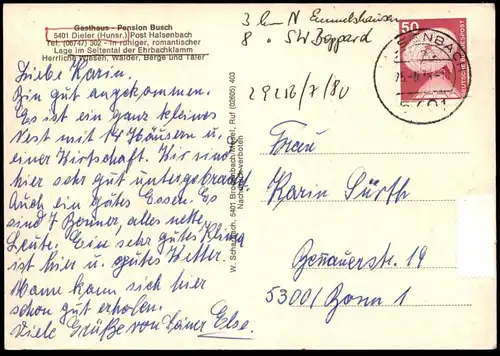 Gasthaus - Pension Busch
5401 Dieler (Hunsr.) Post Halsenbach
Tel. (06747) 302 - In ruhiger, romantischer
Lage im Seitental der Ehrbachklamm
Herrliche Wiesen, Wälder, Berge und Täler
Liebe Karin.
Bin gut angekommen.
Es ist ein ganz kleines
Nest mit 14 Häusern u.
einer Wirtschaft. Wir sind
hier sehr gut untergebracht.
Auch ein gutes Essen. Es
sind 7 Bonner, alles nette
Leute. Ein sehr gutes Klima
ist hier u. gutes Wetter.
Mann kann sich hier
schon gut erholen.
Viele Grüße von Deiner Else.
W. Schabbach, 5401 Brodenbach/Mosel, Ruf (02605) 403
Nachdruck verboten
3 km N Emmelshausen
8 " SW Boppard
29216/7/80
50
DEUTSCHE BUNDESPOST
5401
Frau
Karin Sürth
Bennauerstr. 19
5300 Bonn 1